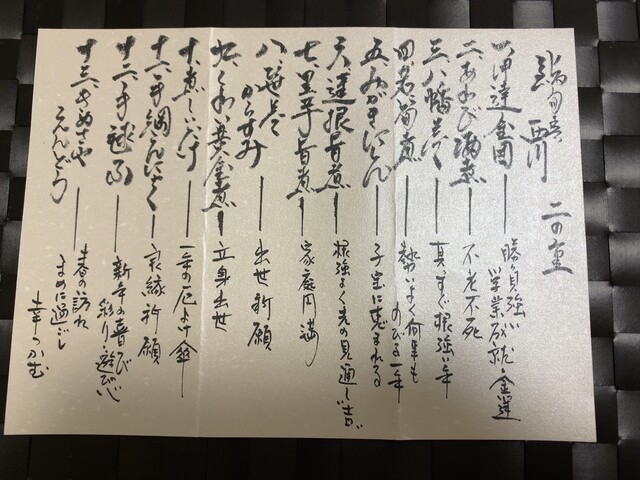 西川 二の重
一、伊達金団 ― 勝負強い 学業成就 金運
二、あわび酒煮 ― 不老不死
三、八幡巻 ― 真すぐ根強い年
四、若筍煮 ― 勢いよく何事も のびる一年
五、みがきにしん ― 子宝に恵まれる
六、蓮根旨煮 ― 根強よく先の見通し
七、里芋旨煮 ― 家庭円満
八、 からすみ ― 出世祈願
九、くわい黄金煮 ― 立身出世
十、煮しいたけ ― 一年の厄よけ傘
十一、手綱こんにゃく ― 良縁祈願
十二、手毬麩 ― 新年の喜び 彩り
十三、きぬさや えんどう ― 春の訪れ まめに過ごし 幸つかむ